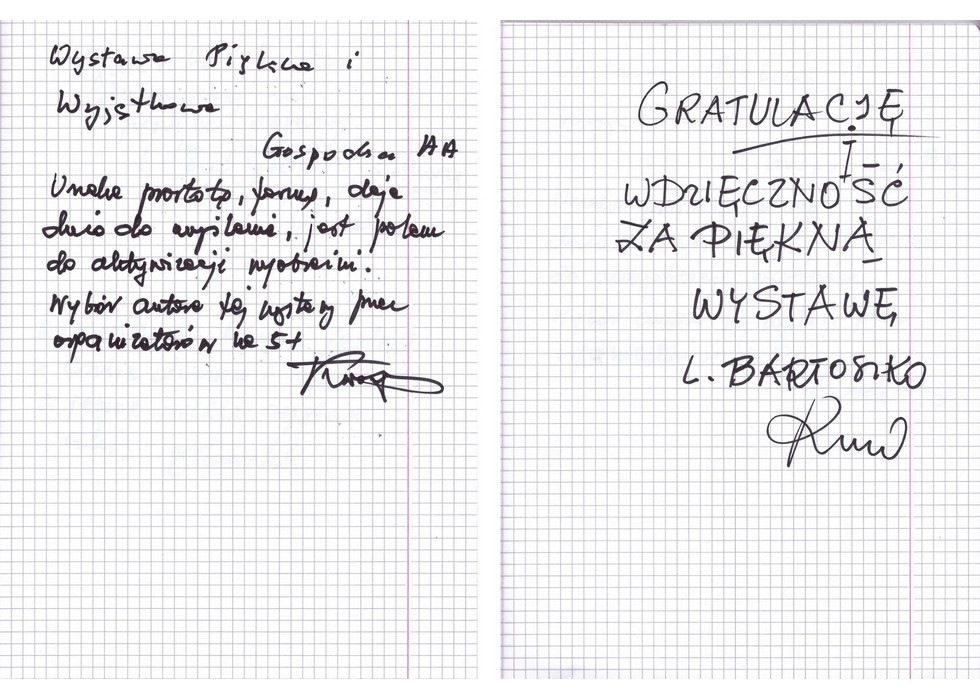 Wystawa Piękna i
Wyjątkowa
Gospodarz AA
Urzeka prostotą, formą, daje
dużo do myślenia, jest polem
do aktywizacji wyobraźni.
Wybór autora tej wystawy przez
organizatorów na 5+
GRATULACJĘ
I
WDZIĘCZNOŚĆ
ZA PIĘKNĄ
WYSTAWĘ
L. BARTOSIKO